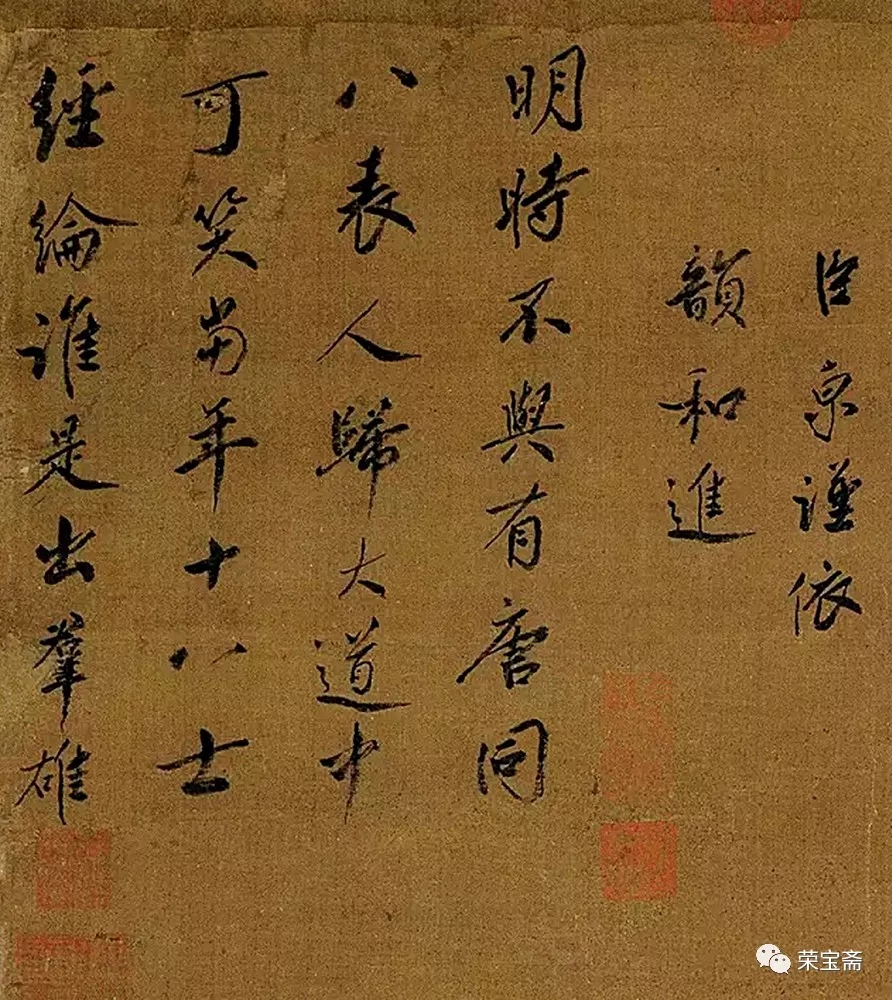 臣京謹依
韻和進
明時不與有唐同
八表人歸大道中
可笑當年十八士
經綸誰是出羣雄
荣宝斋